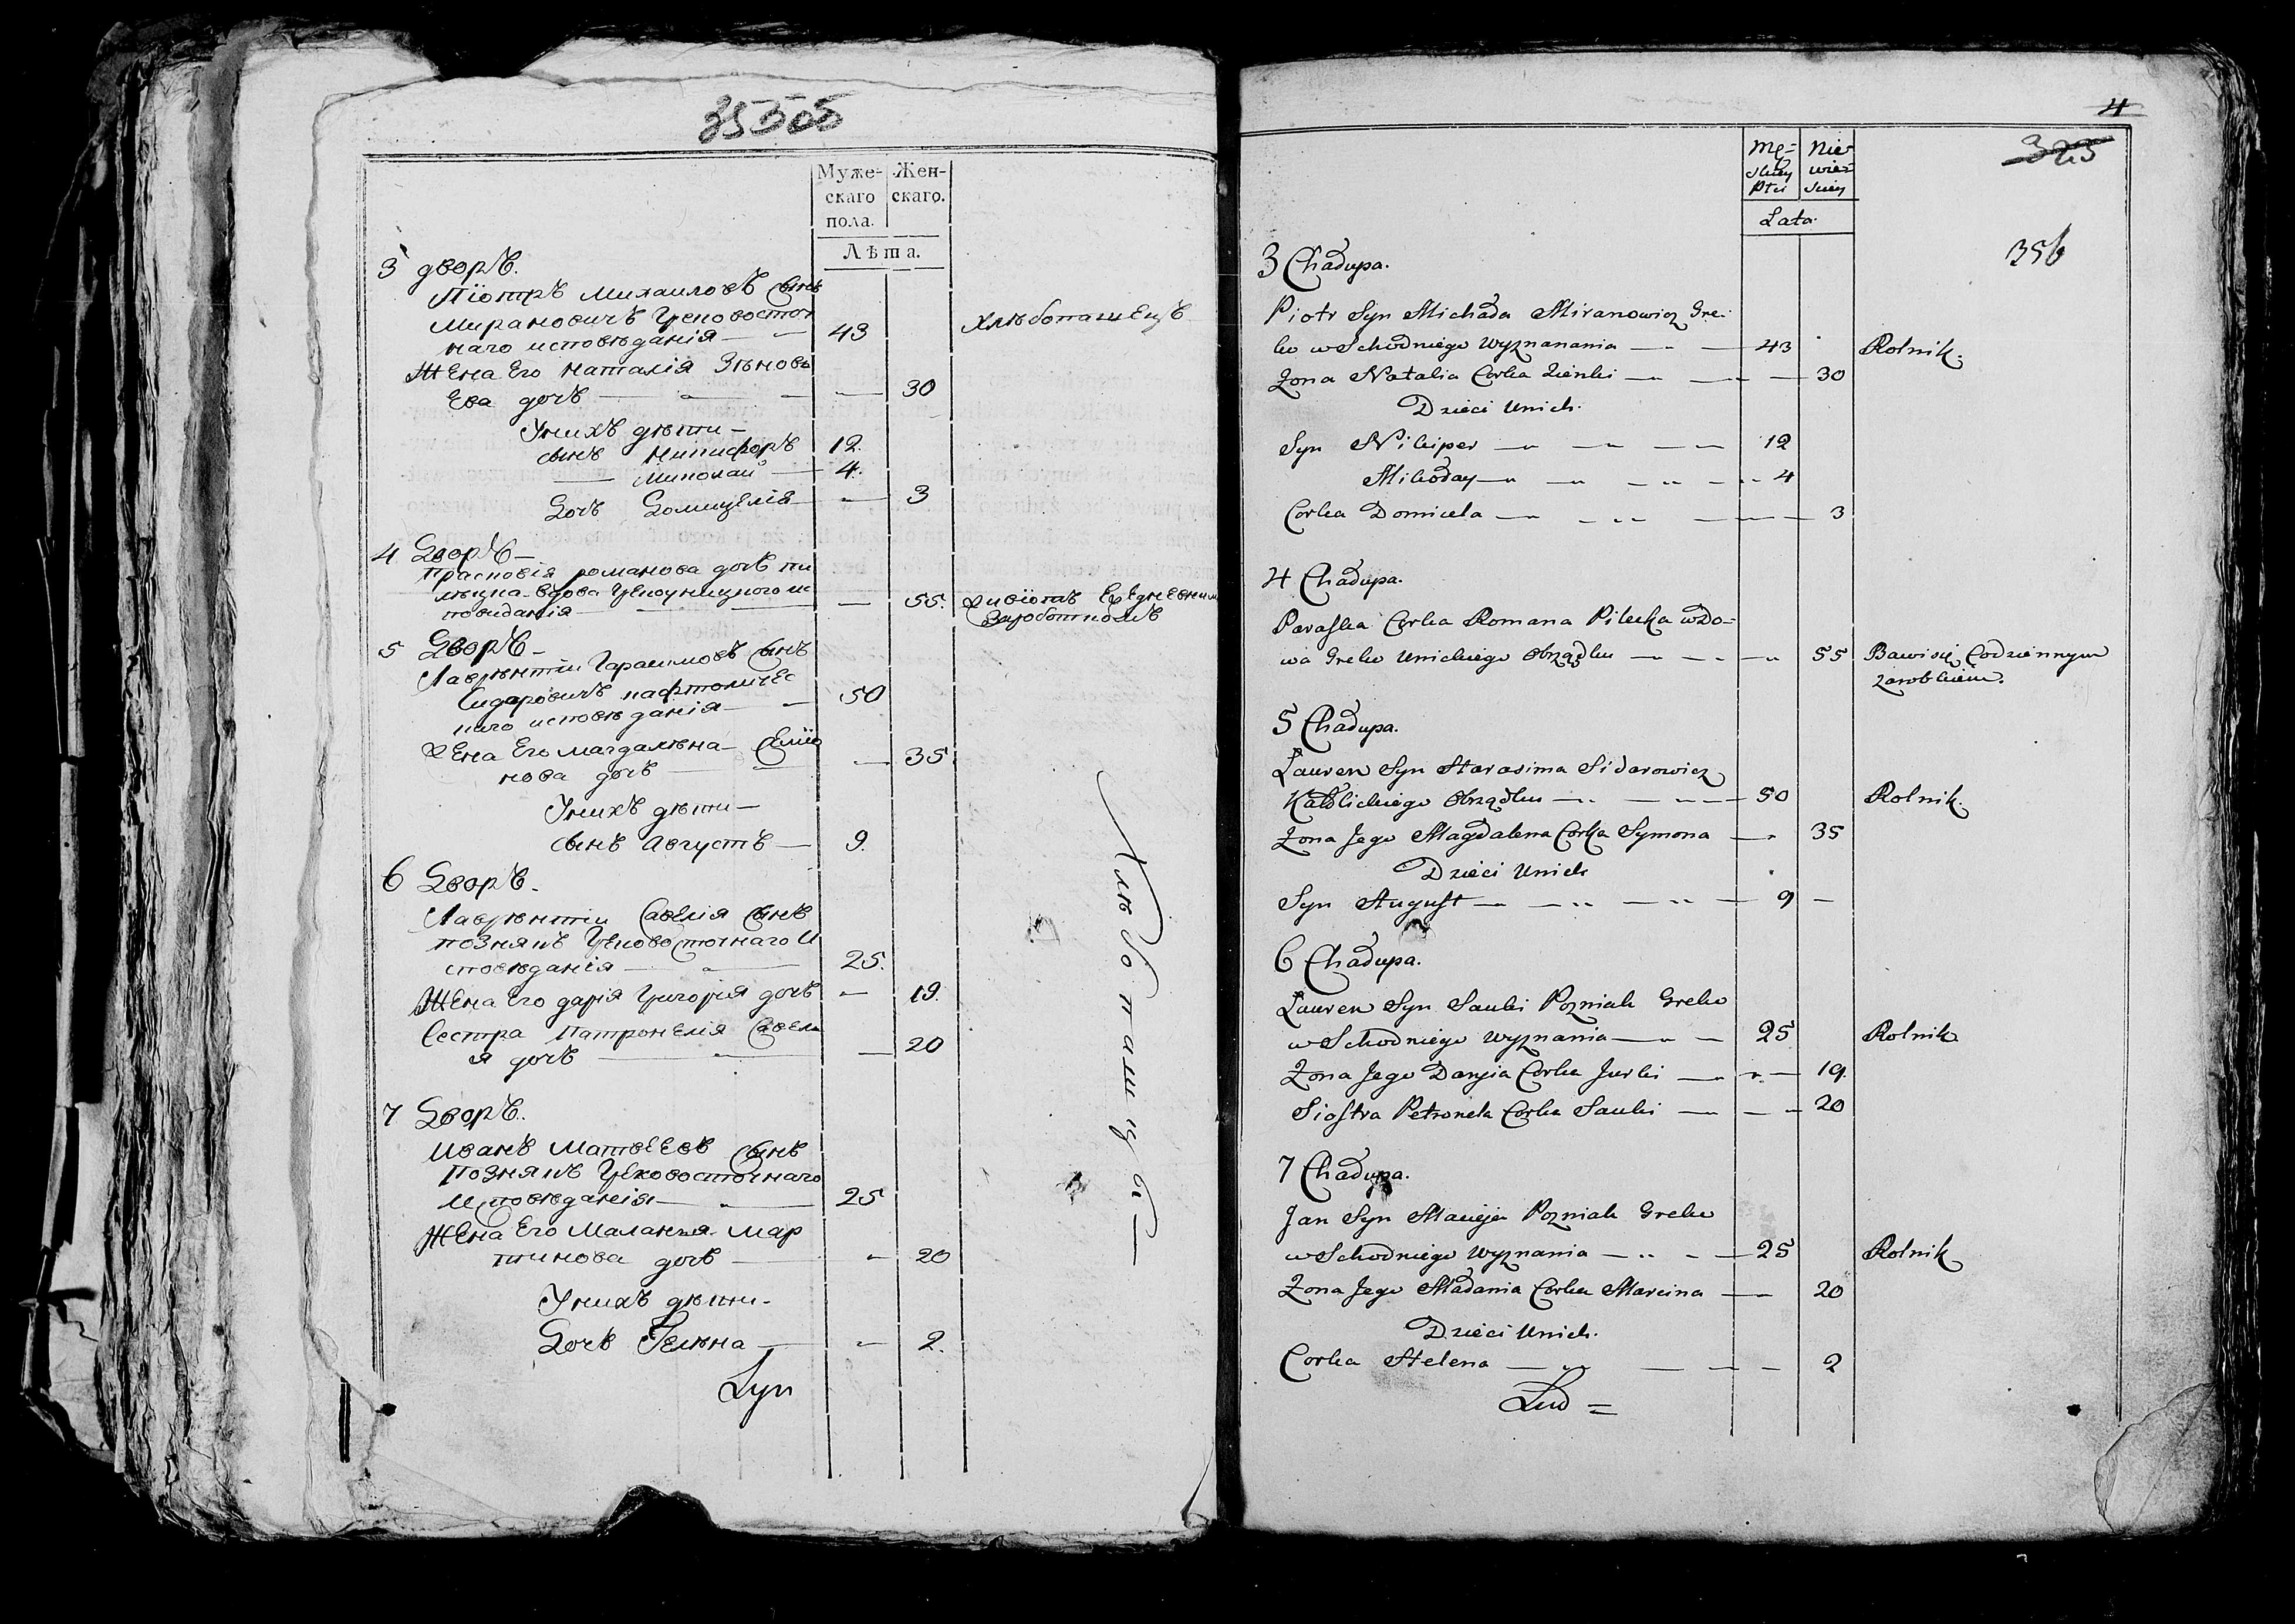 Муже-
скаго
пола.
Жен-
скаго.
Лѣта.
3 дворъ.
Піотръ Михаиловъ Сынъ
Мирановичъ Грековосточ
наго исповѣданія — 43 Хлѣбопашецъ
Жена Его Наталія Зѣновь
Ева дочь — 30
Унихъ дѣти —
сынъ Никифоръ 12.
— Николай — 4.
Дочь Домицелія — 3
4 Дворъ —
Прасковія романова дочь пи
лецка вдова Грекоуницкого ис
повиданія — 55. живіотъ Ежедневним
Заработкомъ
5 Дворъ —
Лаврентій Гарасимовъ Сынъ
Сидаровичъ кафтоличес
каго исповѣданія — 50
Жена Его Магдалѣна Сѣміо
нова дочь — 35
Унихъ дѣти —
сынъ Августъ — 9.
6 Дворъ.
Лаврентій Савелія Сынъ
познякъ Грековосточнаго И
споведанія — 25.
Жена Его дарія Григорія дочь — 19.
Сестра Патронелія Савели
я дочь — 20
7 Дворъ.
Иванъ Матвеевъ Сынъ
Познякъ Грековосточнаго
Исповѣданія — 25
Жена Его Маланья Мар
тинова дочь — 20
Унихъ дѣти.
Дочь Гелѣна — 2.
Хлѣбопашцы
4
323
356
Mę=
skiey
Płci
Nie=
wieś
skiey
Lata.
3 Chałupa.
Piotr Syn Michała Miranowicz Gre=
ko wSchodniego Wyznanania — 43 Rolnik.
Zona Natalia Corka Zieńki — 30
Dzieci Unich.
Syn Nikiper — 12
Mikołay — 4
Corka Domicela — 3
4 Chałupa.
Paraska Corka Romana Pilecka wdo=
wa Greko Unickiego Obrządku — 55 Bawi się Codziennym
zarobkiem.
5 Chałupa.
Lauren Syn Harasima Sidarowicz
Katolickiego Obrządku — 50 Rolnik.
Zona Jego Magdalena Corka Symona — 35
Dzieci Unich
Syn August — 9 —
6 Chałupa.
Lauren Syn Sauki Pozniak Greko
wSchodniego Wyznania — 25 Rolnik
Zona Jego Daryia Corka Jurki — 19.
Siostra Petronela Corka Sauki — 20
7 Chałupa.
Jan Syn Macieja Pozniak Greko
wSchodniego Wyznania — 25 Rolnik
Zona Jego Małania Corka Marcina — 20
Dzieci Unich.
Corka Helena — 2